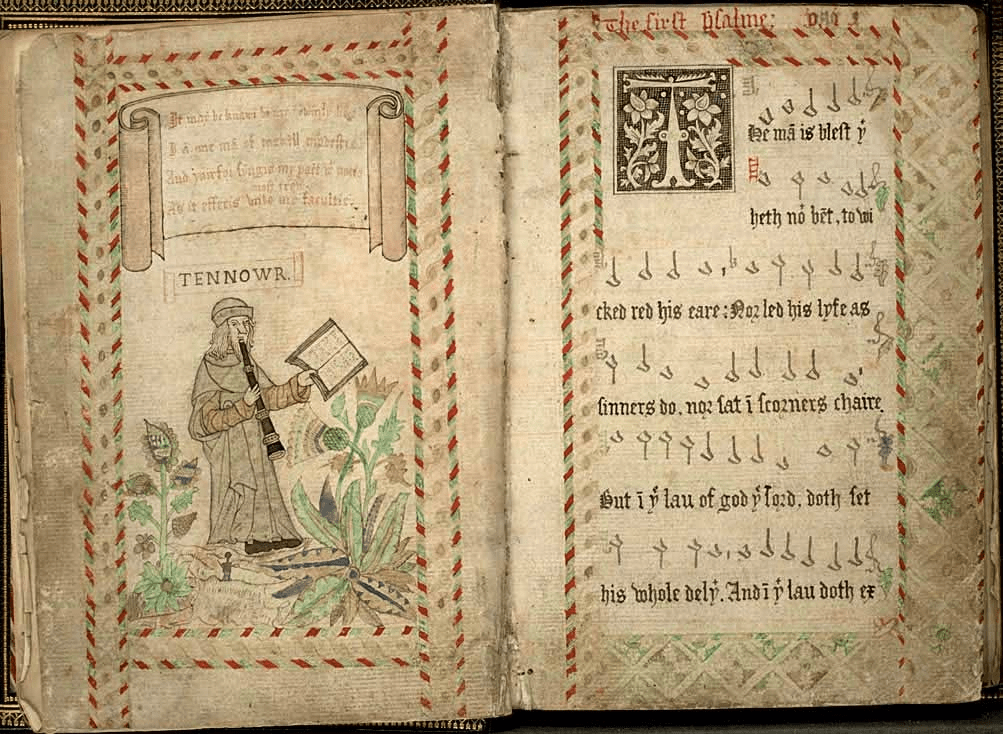 It may be knawi be my
I ā ane mā of
And yairfoir singis my pairt wt notis
most trew
As it efferis vnto my facultie.
TENNOWR.
The first psalme:
THe mā is blest yt
heth not bēt, to wi
cked red his eare: Nor led his lyfe as
sinners do, nor sat ī scorners chaire.
But ī ye lau of god ye lord, doth set
his whole delyt. And ī yt lau doth ex